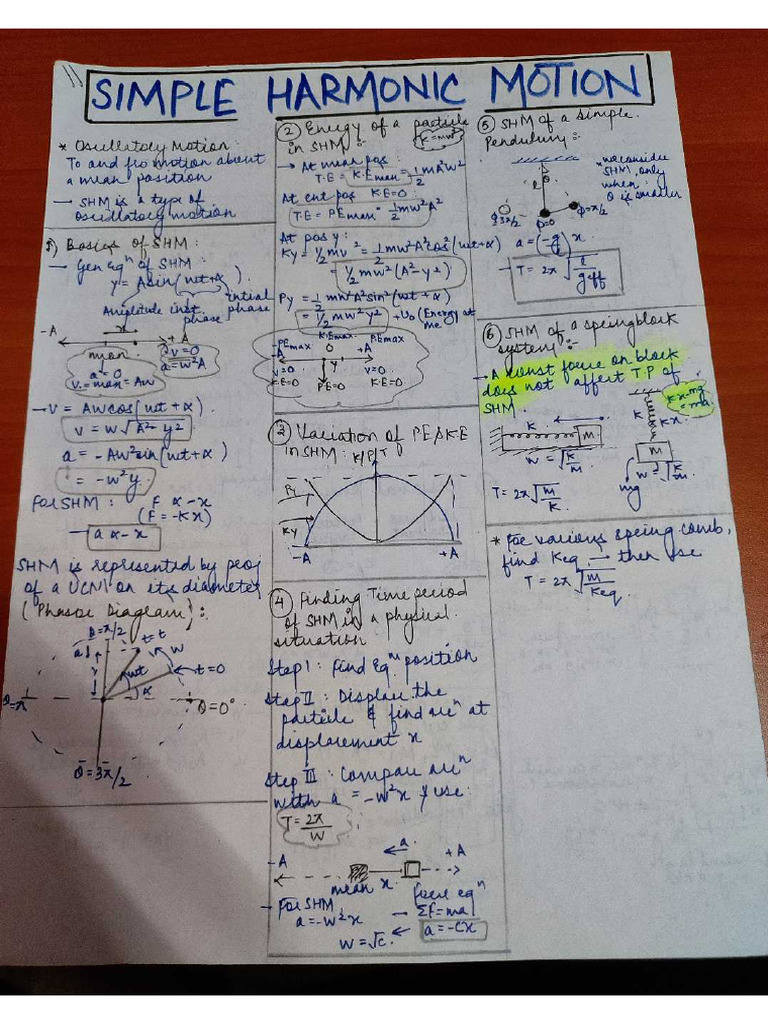 SIMPLE HARMONIC MOTION
* Oscillatory Motion:
To and fro motion about
a mean position
→ SHM is a type of
Oscillatory motion
1) Basics of SHM:
→ Gen Eqⁿ of SHM:
y = A sin(wt + α)
Amplitude inst. phase intial phase
-A x +A
mean
a = 0
Vmax = Aw
v = 0
a = w²A
→ V = Aw cos(wt + α)
v = w√A² - y²
a = -Aw² sin(wt + α)
= -w²y
For SHM: F α -x
(F = -Kx)
→ a α -x
SHM is represented by proj
of a UCM on its diameter
(Phasor Diagram):
θ = π/2 t = t
w
wt t = 0
α
θ = π θ = 0°
θ = 3π/2
② Energy of a particle
in SHM:
K = mw²
→ At mean pos:
T.E = K.Emax = 1/2 mA²w²
At ext pos K.E = 0
T.E = PEmax = 1/2 mw²A²
At pos y:
Ky = 1/2 mv² = 1/2 mw²A² cos²(wt + α)
= 1/2 mw²(A² - y²)
Py = 1/2 mw²A² sin²(wt + α)
= 1/2 mw²y² + U₀ (Energy at
PEmax K.Emax P.Emax
-A O +A
y
v = 0 v = 0
K.E = 0 PE = 0 K.E = 0
③ Variation of PE & KE
in SHM: K/P/T
Py
Ky
-A +A
④ Finding Time period
of SHM in a physical
situation
Step I: Find Eqᵐ position
Step II: Displace the
particle & find accⁿ at
displacement x
Step III: Compare accⁿ
with a = -w²x & use:
T = 2π/w
a
-A +A
mean x
→ For SHM
a = -w²x
force eqⁿ
→ ΣF = ma
a = -cx
w = √c
⑤ SHM of a Simple
Pendulum:-
* we consider
SHM only
when
θ is smaller
θ
l
φ = 0
φ = π/2
φ 3π/2
a = (-g/l) x
→ T = 2π √l/geff
⑥ SHM of a spring block
system:-
→ A const force on block
does not affect T.P of
SHM
Kx - mg
= ma
K Kx
M
mg
w = √K/m
K
M
w = √K/m
T = 2π √m/K
* For various spring comb,
find Keq → then use
T = 2π √m/Keq